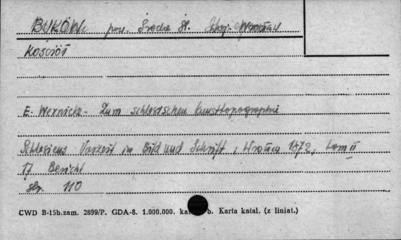 BUKÓW pow. Środa Śl. woj. Wrocław
Kościół
E. Wernicke - Zum schlesischen Kunsttopographie
Schlesiens Vorzeit in Bild und Schrift, Wrocław 1872, tom II
17 Bericht
str. 110
CWD B-15b.zam. 2899/P. GDA-8. 1.000.000. kar b. Karta katal. (z liniat.)